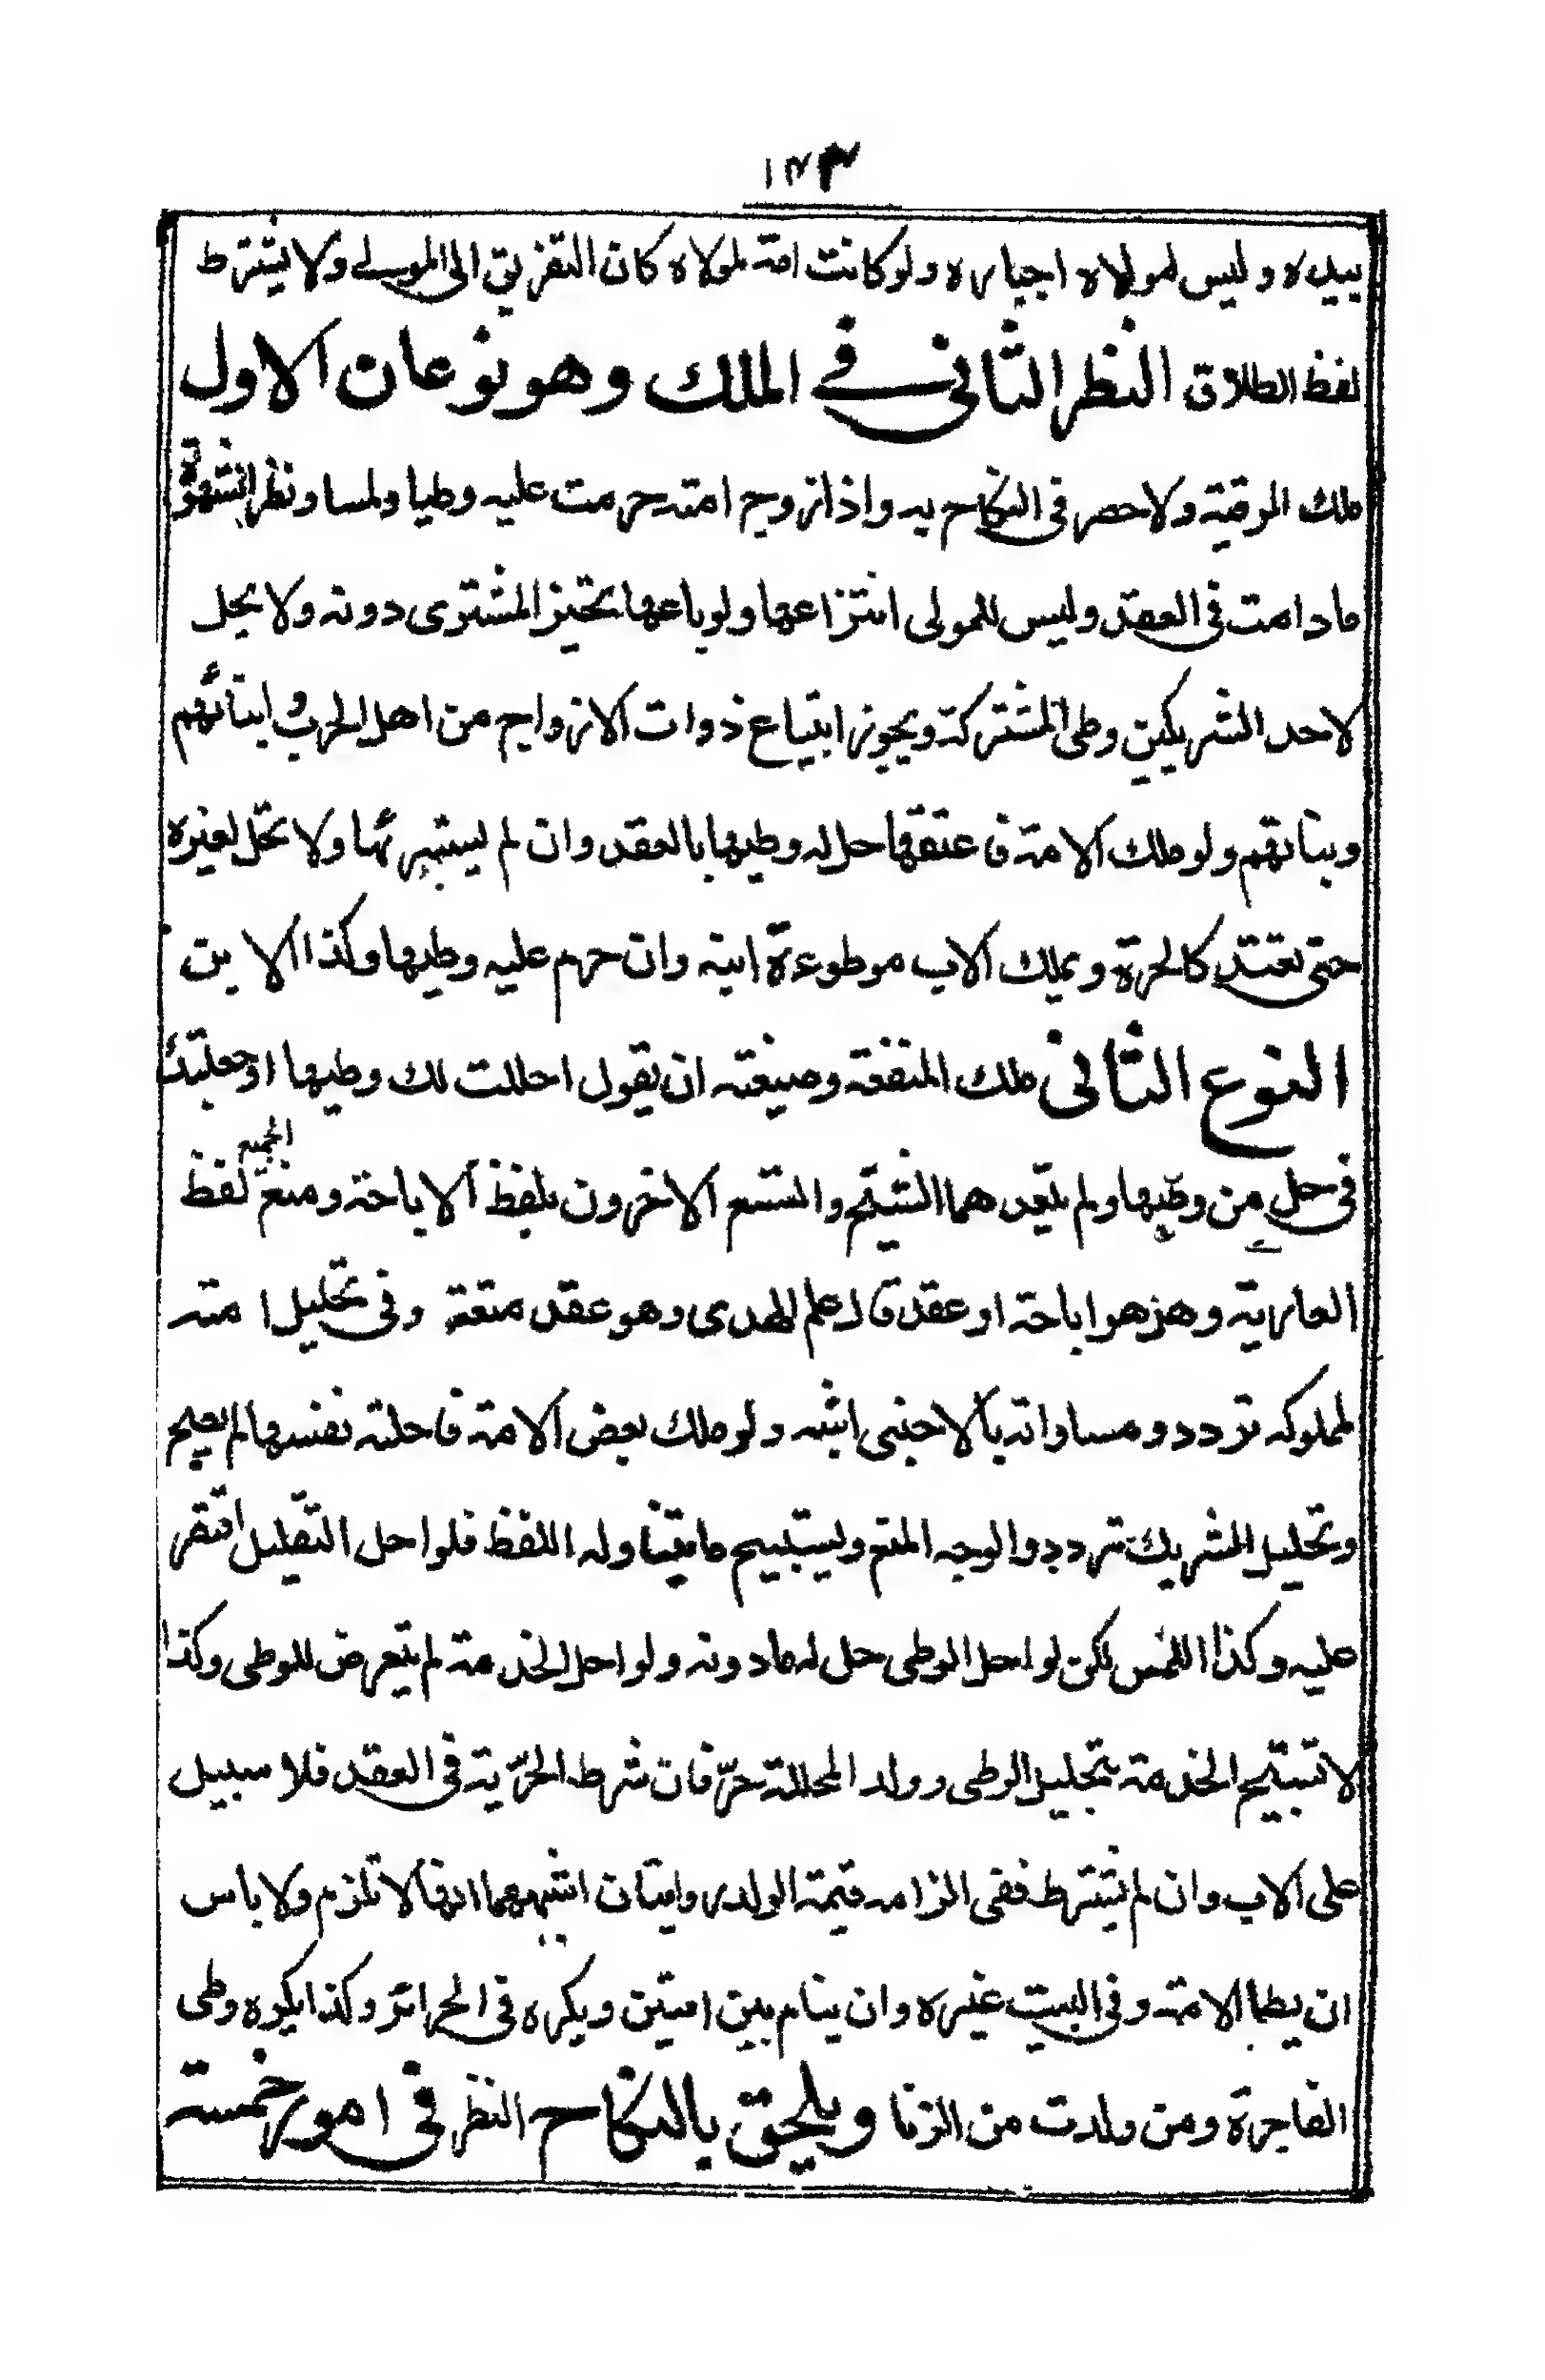 ١٢٣
بيده وليس لمولاه اجباره ولو كانت امة لمولاه كان التفريق الى المولى ولا يشترط
لفظ الطلاق النظر الثانى فى الملك وهو نوعان الاول
ملك الرقبة ولا حصر فى النكاح به واذا زوج امته حرمت عليه وطيا ولمسا ونظرا بشهوة
مادامت فى العقد وليس للمولى انتزاعها ولو باعها تخير المشترى دونه ولا يحل
لاحد الشريكين وطى المشتركة ويجوز ابتياع ذوات الازواج من اهل الحرب وابنائهم
وبناتهم ولو ملك الامة فاعتقها حل له وطيها بالعقد وان لم يستبرئها ولا تحل لغيره
حتى تعتد كالحرة ويملك الاب موطوءة ابنه وان حرم عليه وطيها وكذا الابن
النوع الثانى ملك المنفعة وصيغته ان يقول احللت لك وطيها او جعلتك
فى حل من وطيها ولم يتعدهما الشيخ واتسع الاخرون بلفظ الاباحة ومنع الجميع لفظ
العارية وهز هو اباحة او عقد قال علم الهدى وهو عقد متعة وفى تحليل امته
لمملوكه تردد ومساواته بالاجنبى اشبه ولو ملك بعض الامة فاحلته نفسها لم يصح
وتحليل الشريك تردد والوجه المنع ويستبيح ما يتناوله اللفظ فلو احل التقبيل اقتصر
عليه وكذا اللمس لكن لو احل الوطى حل له مادونه ولو احل الخدمة لم يتعرض للوطى وكذا
لا تستبيح الخدمة بتحليل الوطى وولد المحللة حرّ فان شرط الحرّية فى العقد فلا سبيل
على الاب وان لم يشترط ففى الزامه قيمة الولد روايتان اشبههما انها لا تلزم ولا باس
ان يطأ الامة وفى البيت غيره وان ينام بين امتين ويكره فى الحرائر وكذا يكره وطى
الفاجرة ومن ولدت من الزنا ويلحق بالنكاح النظر فى امور خمسة